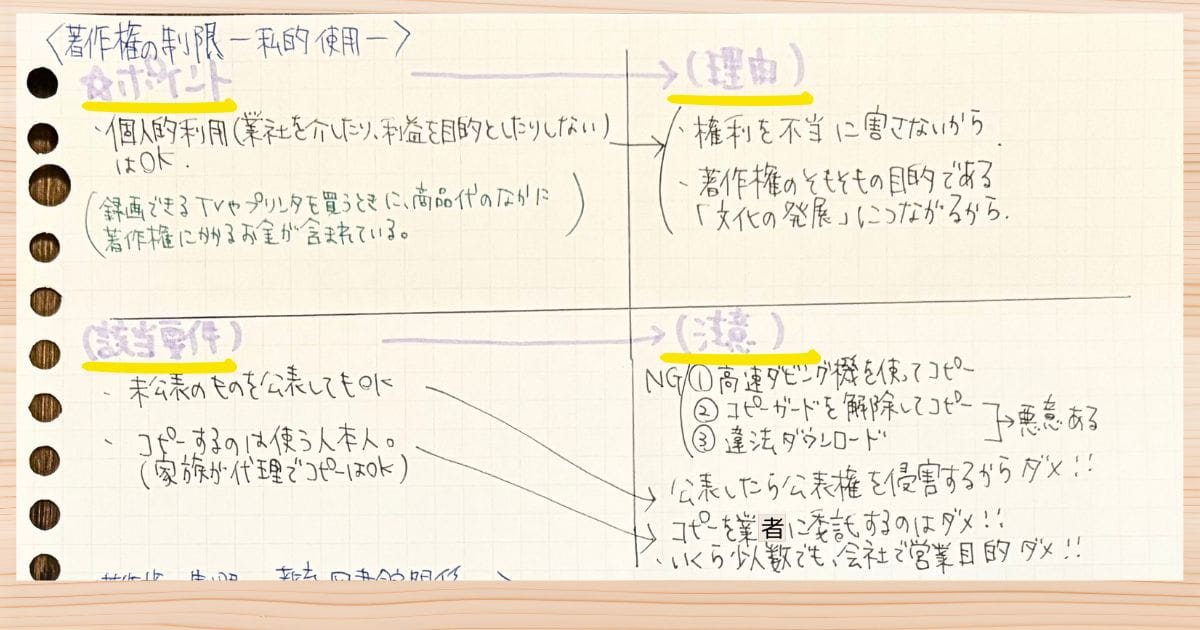 〈著作権の制限 ー私的使用ー〉
☆ポイント
・個人的利用(業社を介したり、利益を目的としたりしない)
はOK.
(録画できるTVやプリンタを買うときに、商品代のなかに
著作権にかかるお金が含まれている。)
→(理由)
・権利を不当に害さないから.
・著作権のそもそもの目的である
「文化の発展」につながるから.
(該当要件)
・未公表のものを公表してもOK
・コピーするのは使う人本人。
(家族が代理でコピーはOK)
→(注意)
NG ①高速ダビング機を使ってコピー
②コピーガードを解除してコピー
③違法ダウンロード
→悪意ある
公表したら公表権を侵害するからダメ!!
コピーを業者に委託するのはダメ!!
・いくら少人数でも、会社で営業目的ダメ!!